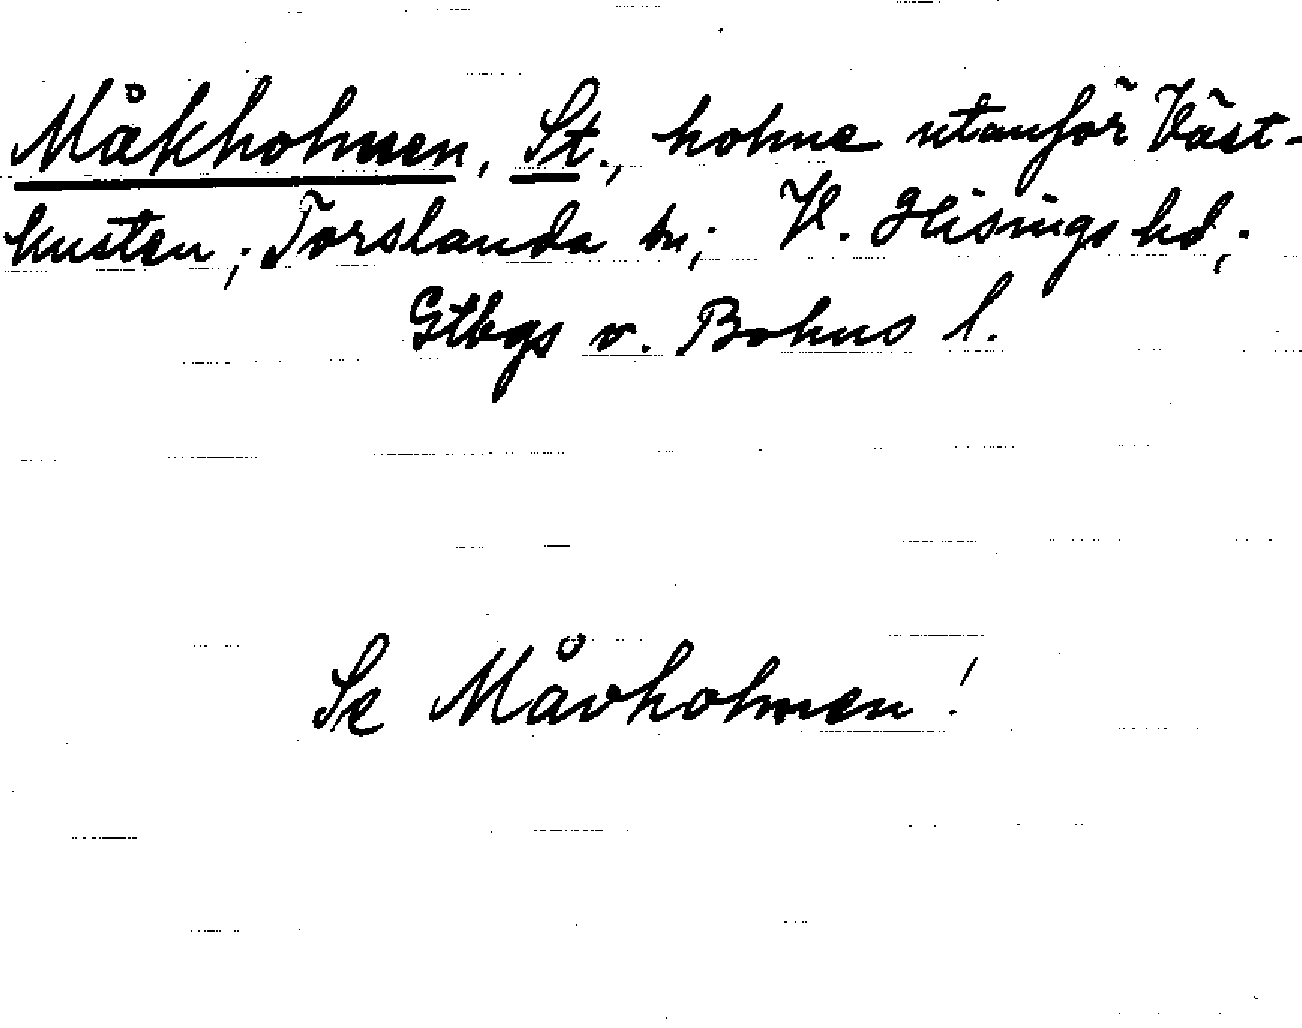 Måkholmen, St., holme utanför Väst-
kusten; Torslanda sn; V. Hisings hd;
Gtbgs o. Bohus l.
Se Måvholmen!